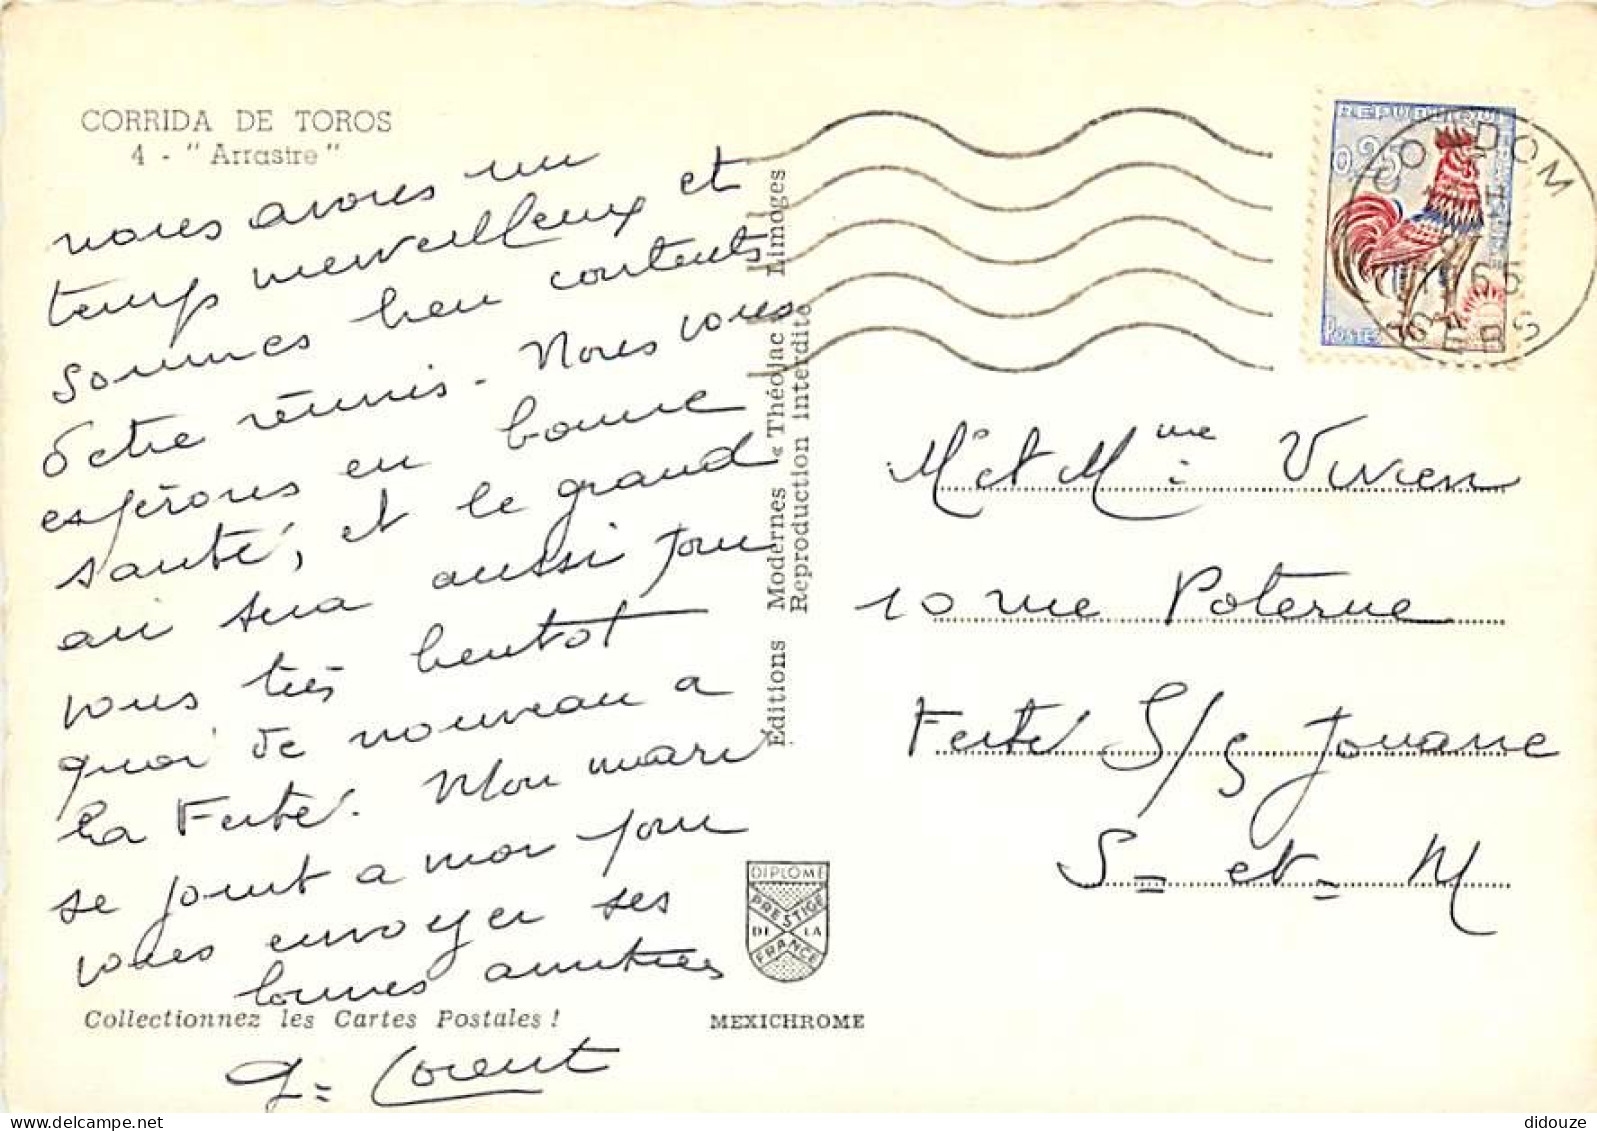 CORRIDA DE TOROS
4 - "Arrastre"
nous avons un
temps merveilleux et
sommes bien contents
d'etre réunis - Nous vous
espérons en bonne
santé, et le grand
air sera aussi pour
vous très bientot
quoi de nouveau a
la Ferté. Mon mari
se joint a moi pour
vous envoyer ses
bonnes amitiés
Collectionnez les Cartes Postales !
Lorent
Editions Modernes « Théojac » Limoges
Reproduction interdite
DIPLOME
PRESTIGE
DE LA
FRANCE
MEXICHROME
0,25
POSTES
CONDOM
GERS
Mr et Mme Vivien
10 rue Poterne
Ferté S/s Jouarre
S= et= M
didouze